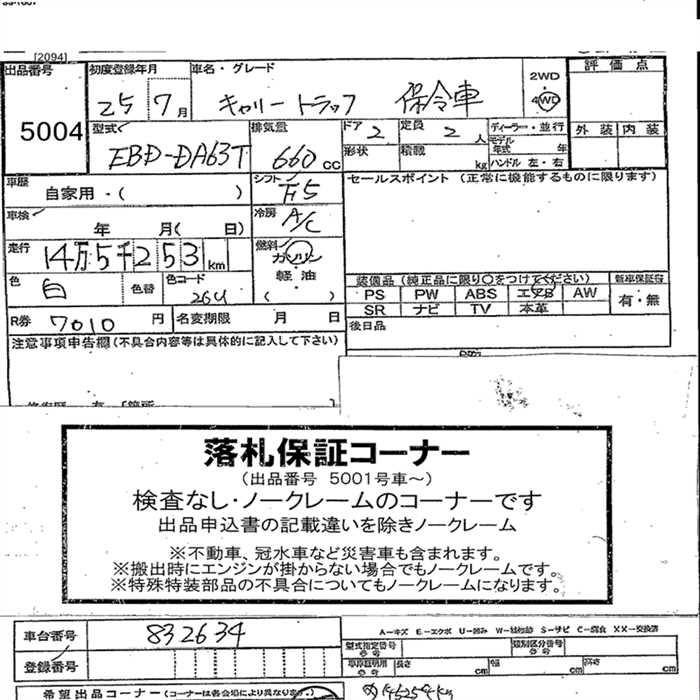 [2094]
出品番号 初度登録年月 車名・グレード 評価点
5004 25 7月 キャリートラック 保冷車 2WD 4WD
型式 EBD-DA63T 排気量 660cc ドア 2 定員 2人 ディーラー・並行 外装 内装
形状 積載 kg モデル年式 年 ハンドル 左・右
車歴 自家用・( ) シフト F5 セールスポイント (正常に機能するものに限ります)
車検 年 月( 日) 冷房 A/C
走行 14万5千253km 燃料 ガソリン 軽油 ( )
色 白 色替 色コード 26U 装備品 (純正品に限り○をつけてください) 新車保証書
PS PW ABS エアB AW 有・無
SR ナビ TV 本革
R券 7010円 名変期限 月 日 後日品
注意事項申告欄(不具合内容等は具体的に記入して下さい)
落札保証コーナー
(出品番号 5001号車~)
検査なし・ノークレームのコーナーです
出品申込書の記載違いを除きノークレーム
※不動車、冠水車など災害車も含まれます。
※搬出時にエンジンが掛からない場合でもノークレームです。
※特殊特装部品の不具合についてもノークレームになります。
車台番号 832634 A-キズ E-エクボ U-凹み W-補修跡 S-サビ C-腐食 XX-交換済
登録番号 型式指定番号 類別区分番号
車庫証明用 長さ cm 幅 cm 高さ cm
希望出品コーナー(コーナーは各会場により異なります)